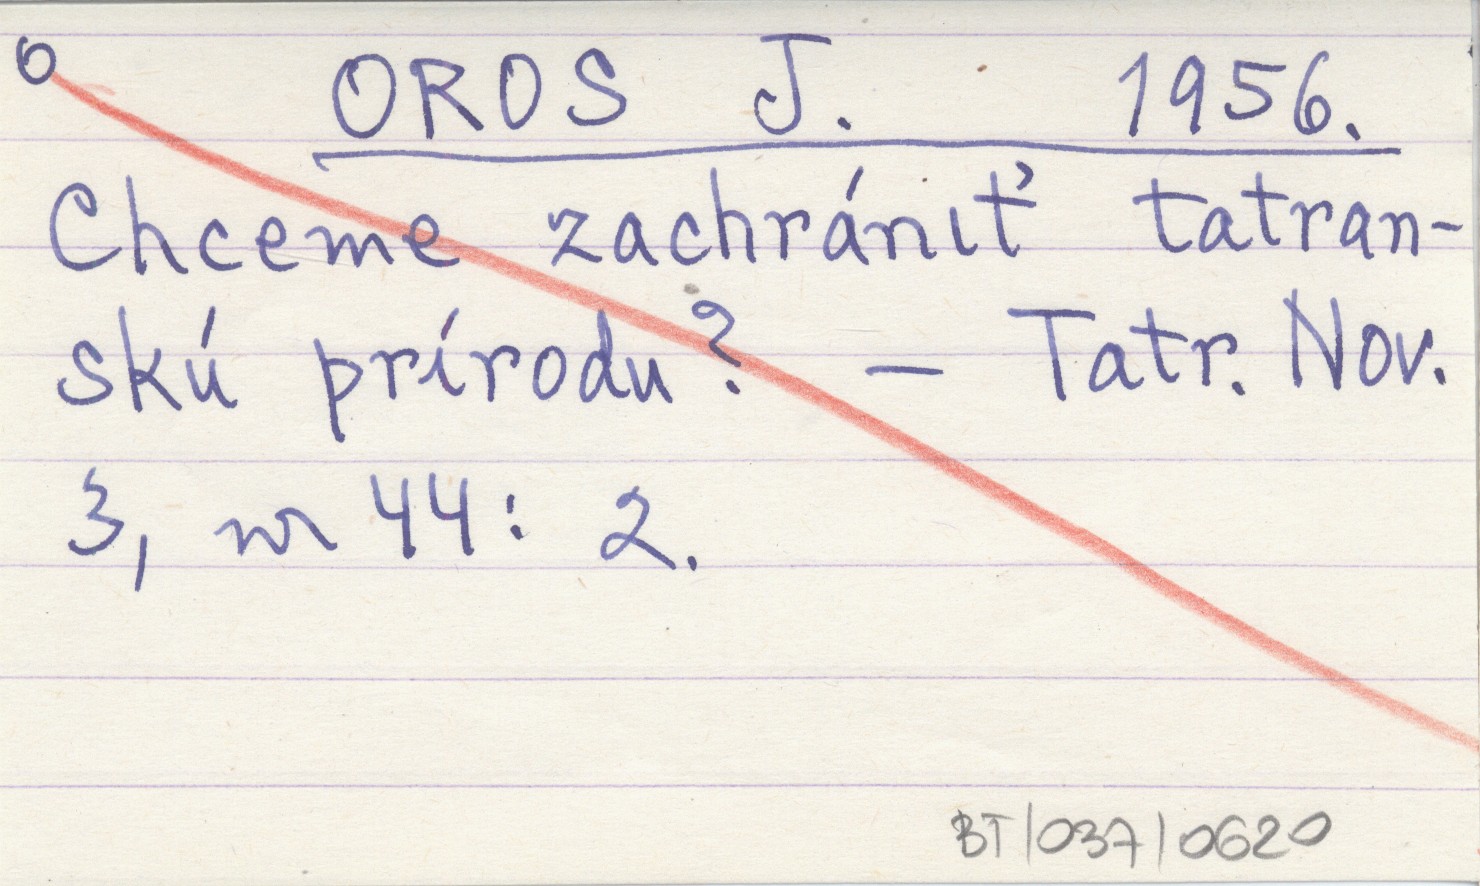 O
OROS J. 1956.
Chceme zachrániť tatran-
skú prírodu? – Tatr. Nov.
3, nr 44: 2.
BT/037/0620